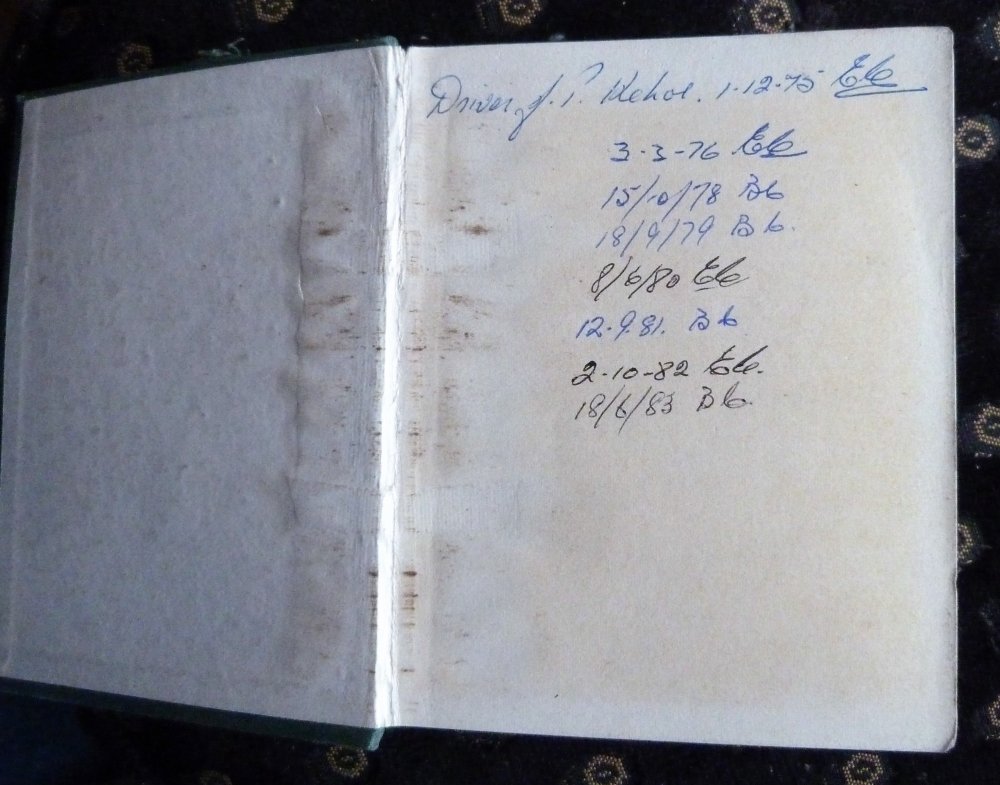 Driver J. P. Kehoe. 1.12.75
3-3-76
15/10/78 Bb
18/9/79 Bb.
8/6/80
12.9.81. Bb
2-10-82
18/6/83 Bb.